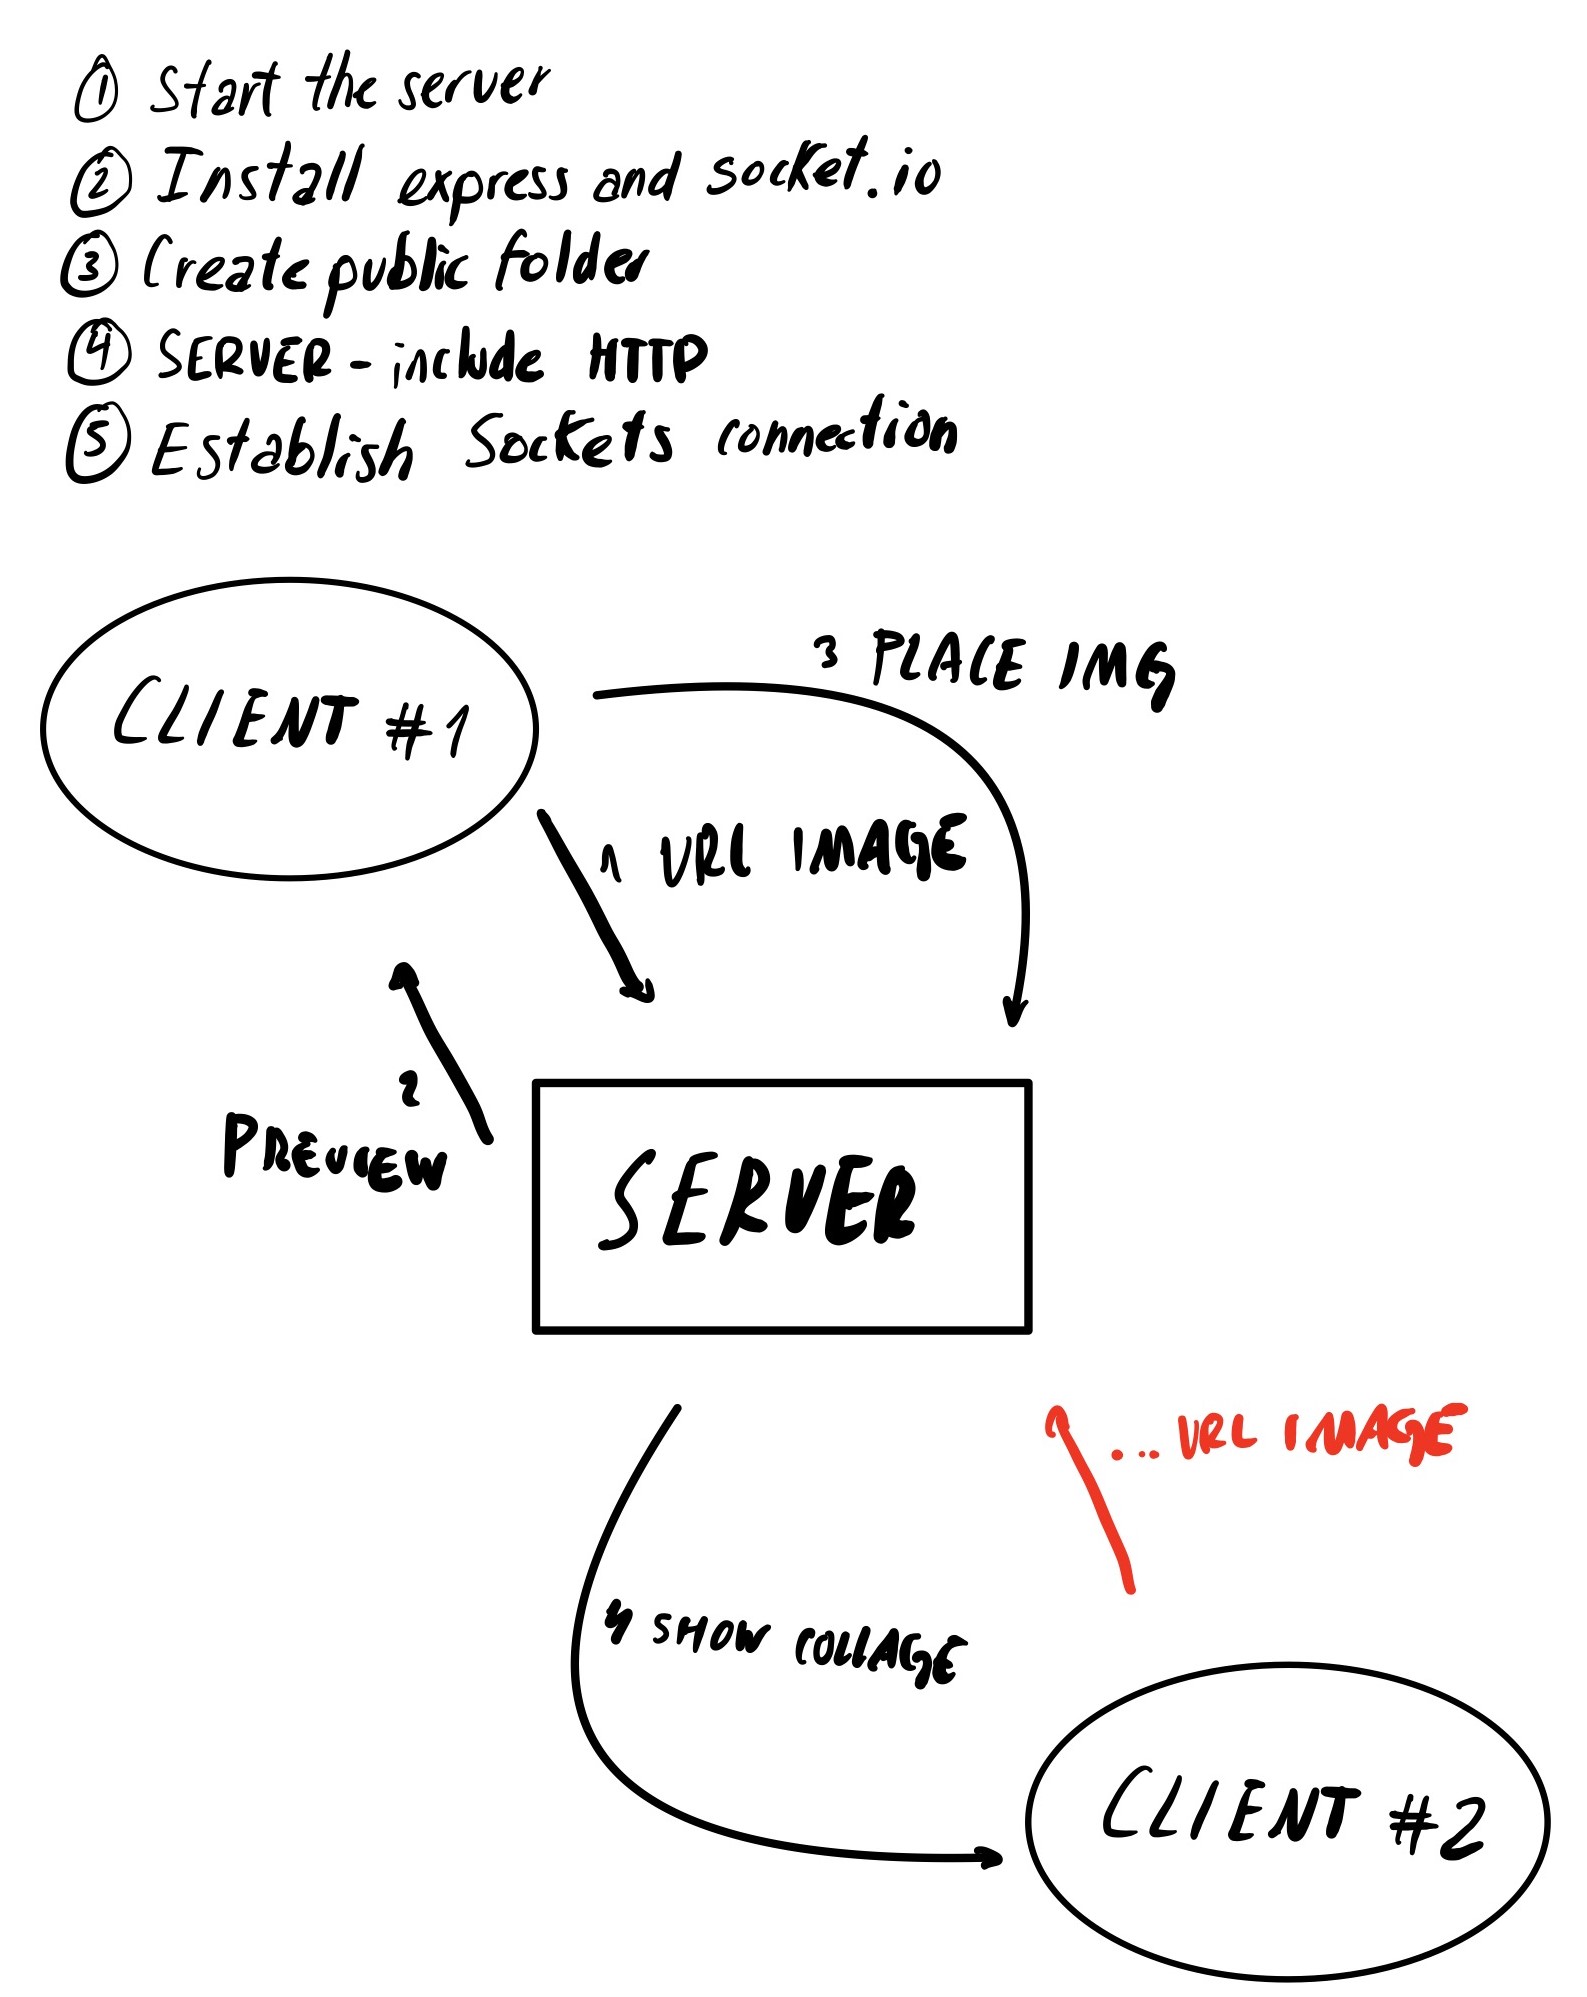 1 Start the server
2 Install express and socket.io
3 Create public folder
4 SERVER - include HTTP
5 Establish Sockets connection
CLIENT #1
3 PLACE IMG
1 URL IMAGE
2
PREVIEW
SERVER
... URL IMAGE
4 SHOW COLLAGE
CLIENT #2